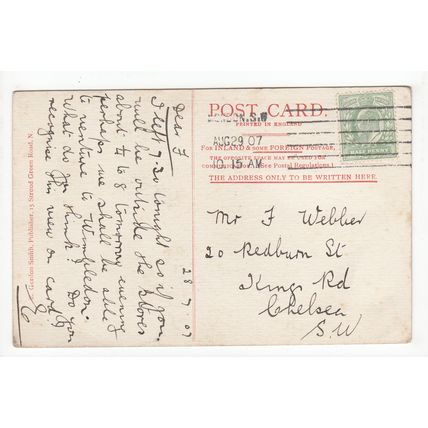 POST CARD.
PRINTED IN ENGLAND
LONDON.S.W
AUG 29 07
10.15 AM
FOR INLAND & SOME FOREIGN POSTAGE,
THE OPPOSITE SPACE MAY BE USED FOR
THE ADDRESS ONLY TO BE WRITTEN HERE.
HALF PENNY
Mr F Webber
20 Redburn St
Kings Rd
Chelsea
S.W
28 07
Dear F
I left 7.30 tonight so if you
will be outside the stores
about ¼ to 8 tomorrow evening
perhaps we shall be able
to venture to Wimbledon.
What do you think? Do you
recognise this view on card?
Gordon Smith, Publisher, 15 Stroud Green Road, N.